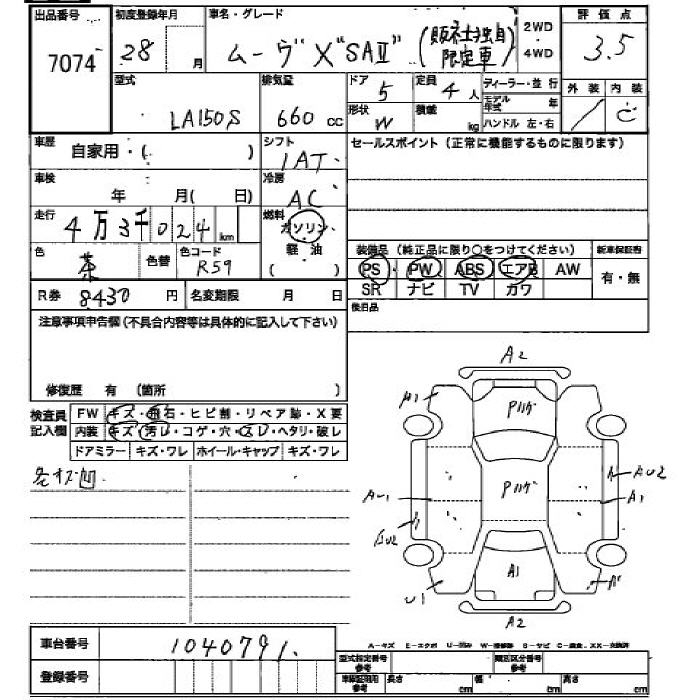 出品番号 初度登録年月 車名・グレード 評価点
7074 28 月 ムーヴ X "SAⅡ" (販社独自限定車) 2WD 4WD 3.5
型式 排気量 ドア 定員 ディーラー・並行 外装 内装
LA150S 660 cc 5 4人 モデル年式 年 C
形状 積載 ハンドル 左・右
W kg
車歴 自家用・( ) シフト セールスポイント (正常に機能するものに限ります)
IAT
車検 年 月( 日) 冷房
AC
走行 4万3千024 km 燃料 ガソリン 軽油 ( )
色 茶 色替 色コード R59 装備品 (純正品に限り○をつけてください) 新車保証書
PS PW ABS エアB AW 有・無
R券 8430 円 名変期限 月 日 SR ナビ TV カワ
注意事項申告欄(不具合内容等は具体的に記入して下さい) 後日品
修復歴 有 (箇所 )
検査員記入欄 FW キズ・飛石・ヒビ割・リペア跡・X要
内装 キズ・汚れ・コゲ・穴・スレ・ヘタリ・破レ
ドアミラー キズ・ワレ ホイール・キャップ キズ・ワレ
各キズ凹
A2
A1 Pハゲ
AU2
AU1 Pハゲ A1
U1 A1
A2
車台番号 1040791
A-キズ E-エクボ U-凹み W-補修跡 S-サビ C-腐食 XX-交換済
登録番号 型式指定番号参考 類別区分番号参考
車庫証明用参考 長さ cm 幅 cm 高さ cm